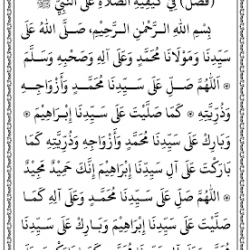 (فَصْلٌ) فِي كَيْفِيَّةِ الصَّلَاةِ عَلَى النَّبِيِّ ﷺ
بِسْمِ اللهِ الرَّحْمٰنِ الرَّحِيمِ، صَلَّى اللهُ عَلَى
سَيِّدِنَا وَمَوْلَانَا مُحَمَّدٍ وَعَلَى آلِهِ وَصَحْبِهِ وَسَلَّمَ
* اَللّٰهُمَّ صَلِّ عَلَى سَيِّدِنَا مُحَمَّدٍ وَأَزْوَاجِهِ
وَذُرِّيَّتِهِ * كَمَا صَلَّيْتَ عَلَى سَيِّدِنَا إِبْرَاهِيمَ *
وَبَارِكْ عَلَى سَيِّدِنَا مُحَمَّدٍ وَأَزْوَاجِهِ وَذُرِّيَّتِهِ كَمَا
بَارَكْتَ عَلَى آلِ سَيِّدِنَا إِبْرَاهِيمَ إِنَّكَ حَمِيدٌ مَجِيدٌ
* اَللّٰهُمَّ صَلِّ عَلَى سَيِّدِنَا مُحَمَّدٍ وَعَلَى آلِهِ كَمَا
صَلَّيْتَ عَلَى سَيِّدِنَا إِبْرَاهِيمَ وَبَارِكْ عَلَى سَيِّدِنَا